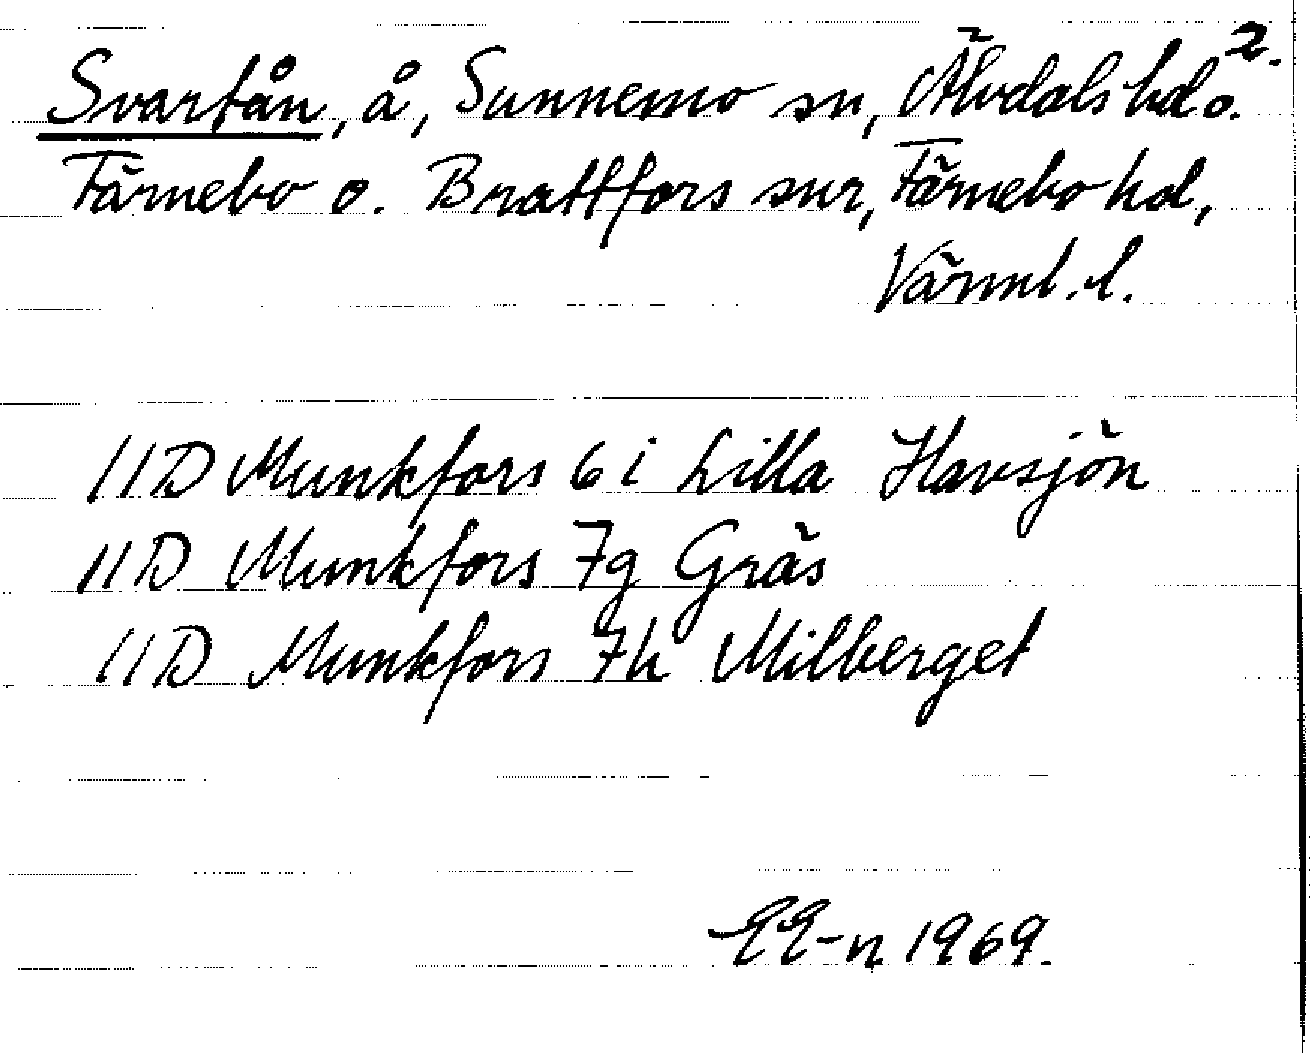 Svartån, å, Sunnemo sn, Älvdals hd o. 2.
Färnebo o. Brattfors snr, Färnebo hd,
Värml. l.
11D Munkfors 6i Lilla Havsjön
11D Munkfors 7g Gräs
11D Munkfors 7h Milberget
EE-n 1969.